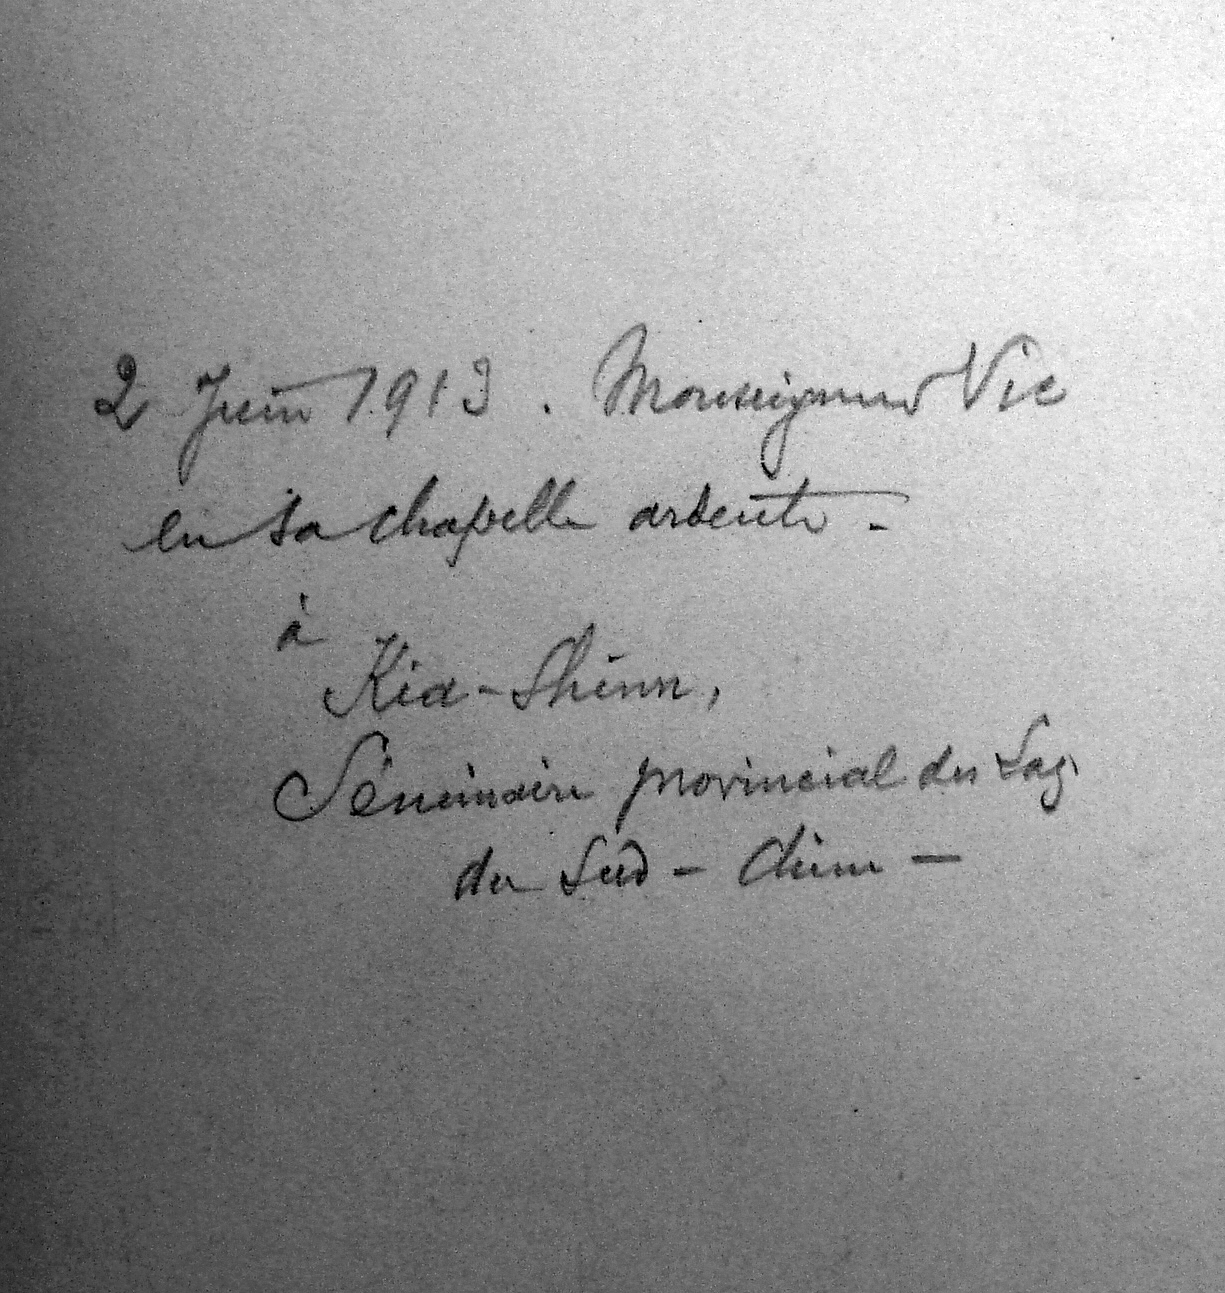 2 Juin 1913. Monseigneur Vic
en sa chapelle ardente -
à
Kia-Shinn,
Séminaire provincial des Laz.
du Sud - Chine -